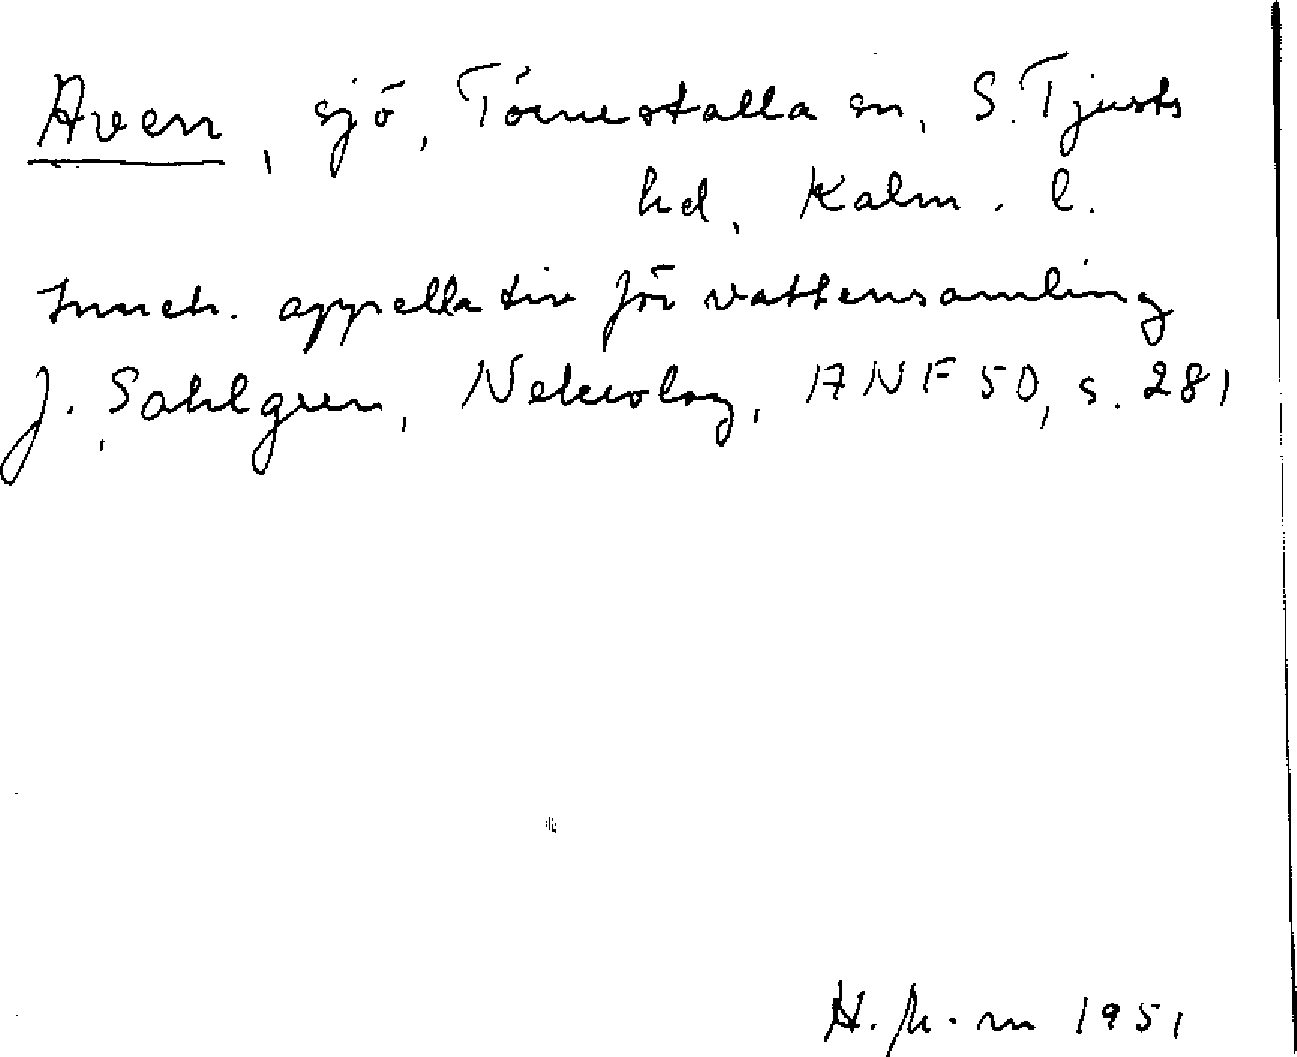 Aven, sjö, Törnestalla sn, S. Tjusts
hd, Kalm. l.
Inneh. appellativ för vattensamling
J. Sahlgren, Nekrolog, ANF 50, s. 281
H. M-m 1951